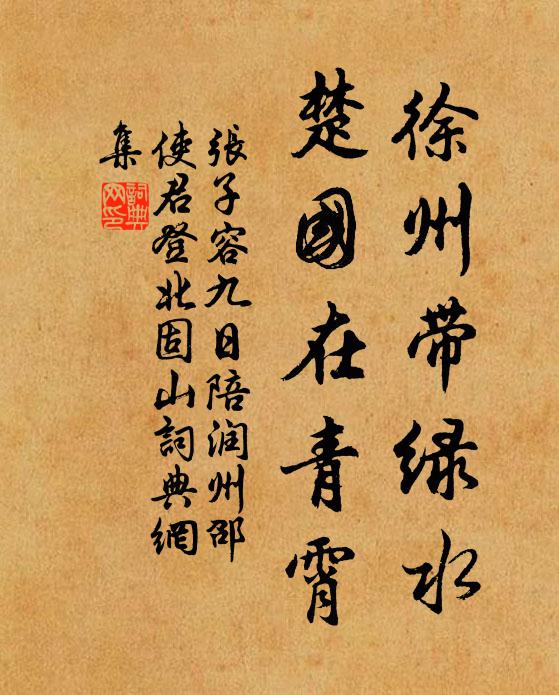 徐州带绿水
楚國在青霄
張子容九日陪润州邵
使君登北固山詞典網
集
詞典网印